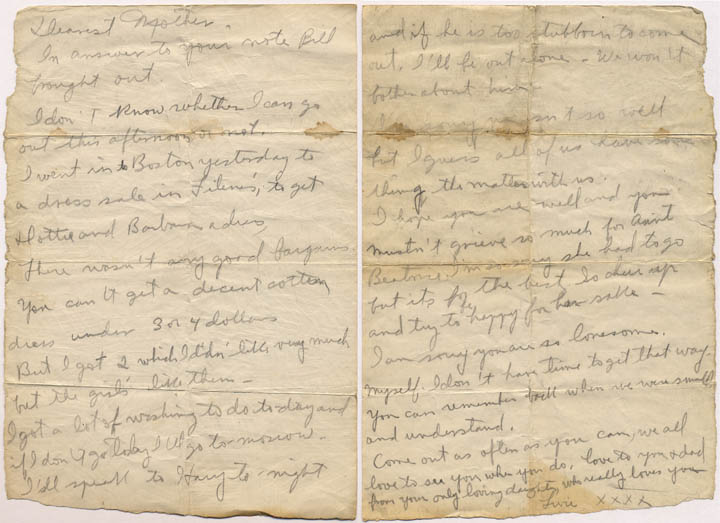 Dearest Mother.
In answer to your note Bill
brought out.
I don't know whether I can go
out this afternoon or not.
I went in to Boston yesterday to
a dress sale in Filene's, to get
Hottie and Barbara a dress,
there wasn't any good bargains.
You can't get a decent cotton
dress under 3 or 4 dollars
But I got 2 which I didn't like very much
but the girls' like them -
I got a lot of washing to do to-day and
if I don't go today I'll go to-morrow.
I'll speak to Harry to-night
and if he is too stubborn to come
out, I'll be out alone - We won't
bother about him
sorry wasn't so well
but I guess all of us have some
thing the matter with us.
I hope you are well and you
mustn't grieve so much for Aunt
Beatrice. I'm so sorry she had to go
but its for the best. So cheer up
and try to happy for her sake -
I am sorry you are so lonesome.
myself. I don't have time to get that way.
You can remember back when we were small
and understand.
Come out as often as you can, we all
love to see you when you do, love to you & dad
from your only loving daughter who really loves you
xxxx